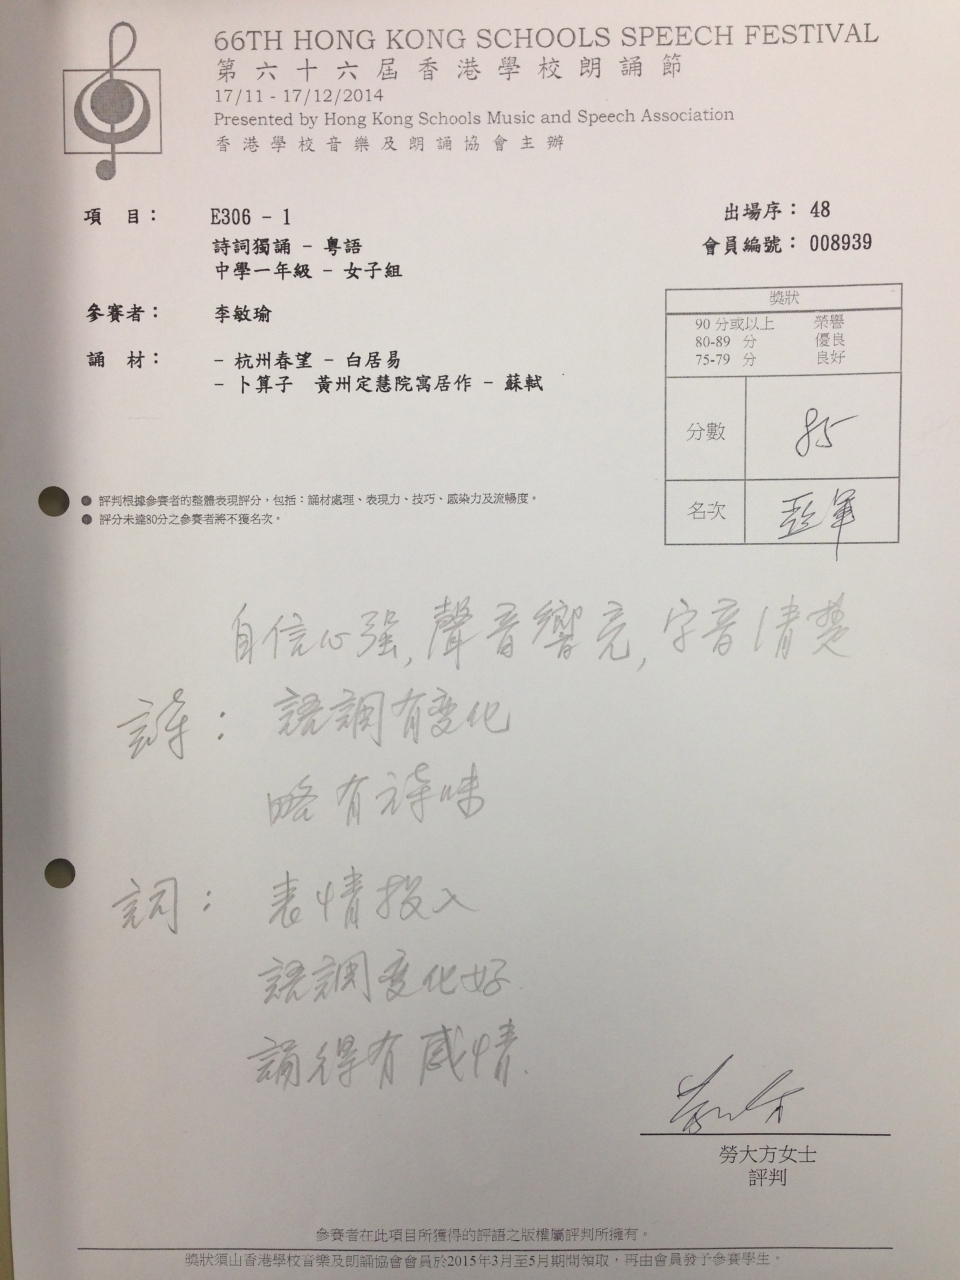 66TH HONG KONG SCHOOLS SPEECH FESTIVAL
第六十六屆香港學校朗誦節
17/11 - 17/12/2014
Presented by Hong Kong Schools Music and Speech Association
香港學校音樂及朗誦協會主辦
項 目： E306 - 1
出場序： 48
詩詞獨誦 - 粵語
會員編號： 008939
中學一年級 - 女子組
參賽者： 李敏瑜
誦 材： - 杭州春望 - 白居易
- 卜算子 黃州定慧院寓居作 - 蘇軾
獎狀
90 分或以上 榮譽
80-89 分 優良
75-79 分 良好
分數 85
名次 亞軍
● 評判根據參賽者的整體表現評分，包括：誦材處理、表現力、技巧、感染力及流暢度。
● 評分未達80分之參賽者將不獲名次。
自信心强, 聲音響亮, 字音清楚
詩： 語調有变化
略有诗味
詞： 表情投入
語調变化好.
誦得有感情.
勞大方女士
評判
參賽者在此項目所獲得的評語之版權屬評判所擁有。
獎狀須由香港學校音樂及朗誦協會會員於2015年3月至5月期間領取，再由會員發予參賽學生。